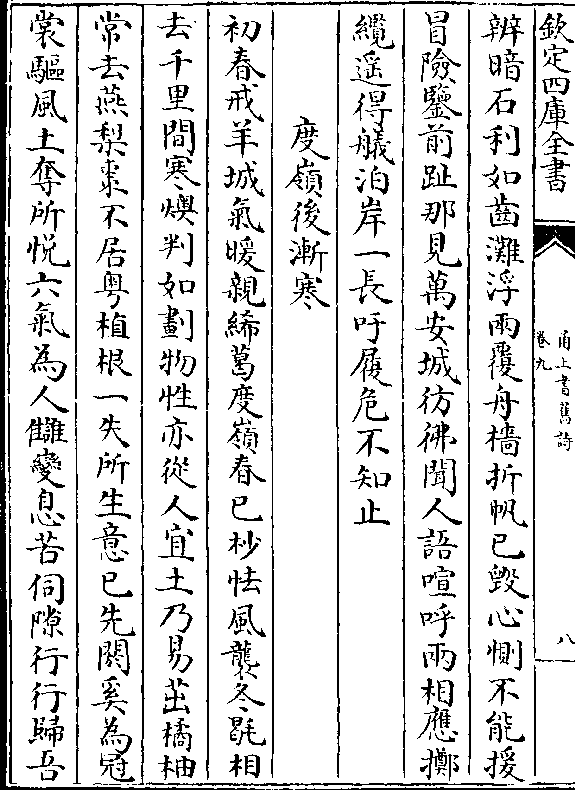 欽定四庫全書
甬上耆舊詩
卷九
八
辨暗石利如齒灘浮兩覆舟檣折帆已毀心惻不能援
冒險鑒前趾那見萬安城彷彿聞人語喧呼兩相應擲
纜遥得艤泊岸一長吁履危不知止
度嶺後漸寒
初春戒羊城氣暖親絺葛度嶺春已杪怯風襲冬毼相
去千里間寒燠判如劃物性亦從人宜土乃易茁橘柚
常去燕梨棗不居粤植根一失所生意已先閼奚為冠
裳驅風土奪所悦六氣為人讎變息若伺隙行行歸吾